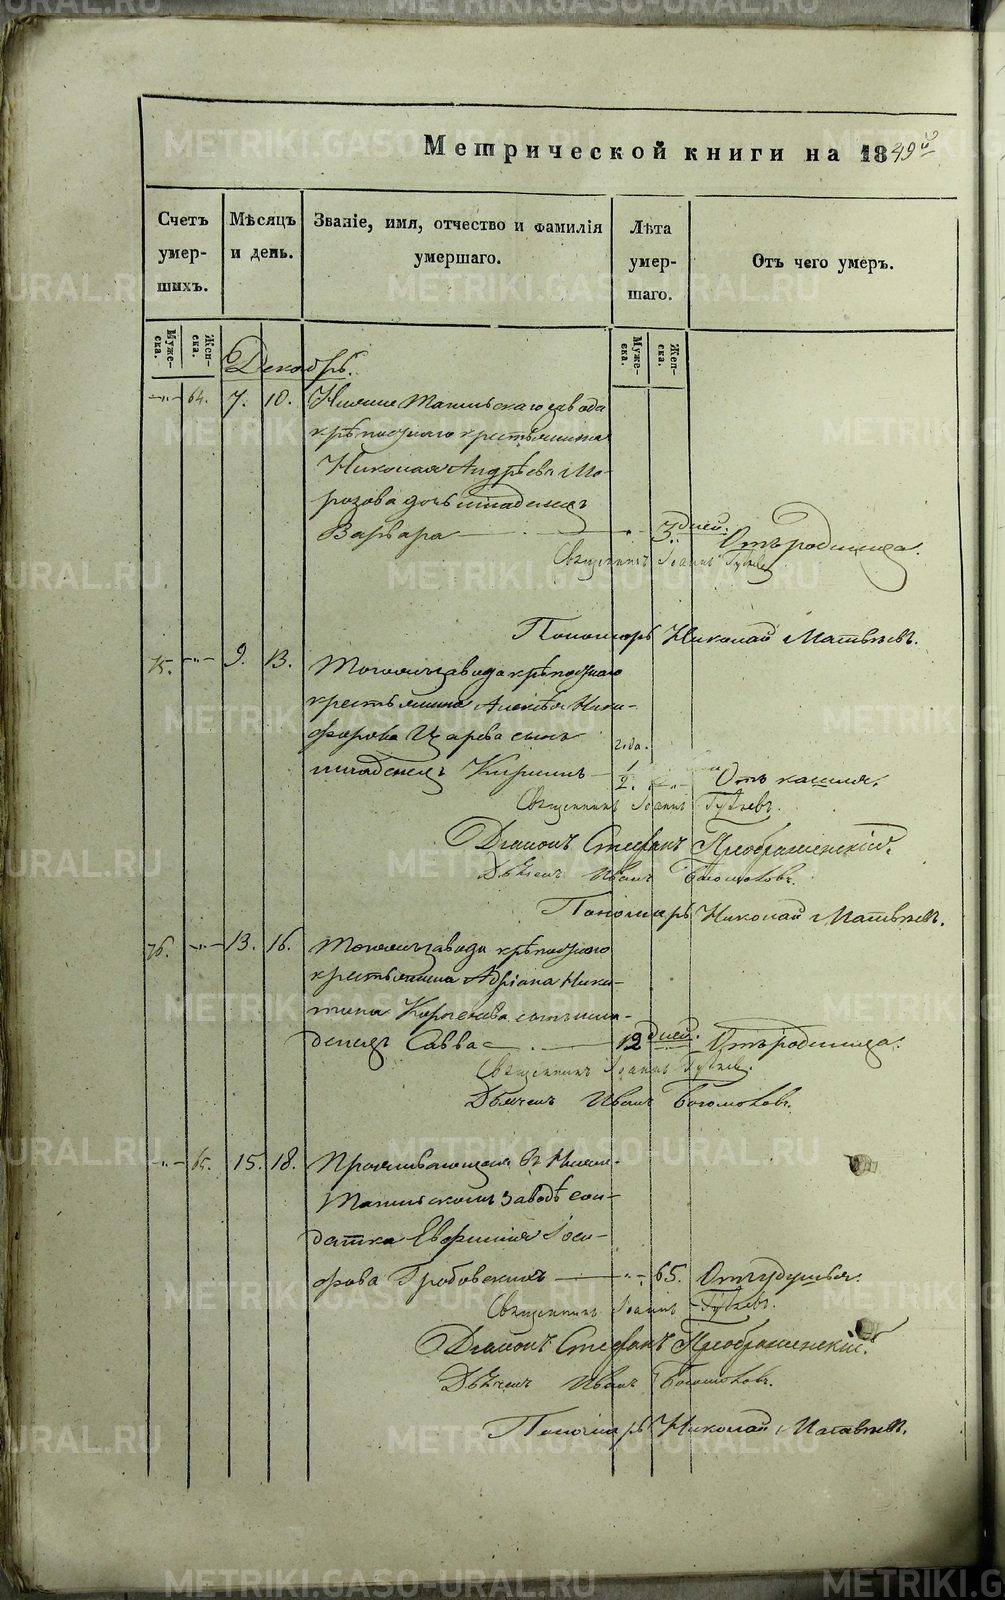 Метрической книги на 1849й
Счетъ умер-шихъ.
Мѣсяцъ и день.
Званіе, имя, отчество и фамилія умершаго.
Лѣта умер-шаго.
Отъ чего умеръ.
Муже-ска.
Жен-ска.
Муже-ска.
Жен-ска.
Декабрь.
64. 7. 10. Нижне Тагильскаго завода
крѣпостнаго крестьянина
Николая Андрѣева Мо-
розова дочь младенецъ
Варвара 3 дней. Отъ родимца.
Священникъ Іоаннъ
Пономарь Николай Матвѣевъ.
75. 9. 13. Тогожъ завода крѣпостнаго
крестьянина Алексѣя Ники-
форова Царева сынъ
года.
младенецъ Кирилъ 1/2. Отъ кашля.
Священникъ Іоаннъ
Діаконъ Стефанъ Преображенскій.
Дьячекъ Иванъ Богомоловъ.
Пономарь Николай Матвѣевъ.
76. 13. 16. Тогожъ завода крѣпостнаго
крестьянина Адріана Ники-
тина сынъ мла-
денецъ Савва 12 дней. Отъ родимца.
Священникъ Іоаннъ
Дьячекъ Иванъ Богомоловъ.
65. 15. 18. Проживающая въ Нижне-
Тагильскомъ заводѣ сол-
датка Евфимія Іоси-
фова Гробовскихъ 65. Отъ удушья.
Священникъ Іоаннъ
Діаконъ Стефанъ Преображенскій.
Дьячекъ Иванъ Богомоловъ.
Пономарь Николай Матвѣевъ.
METRIKI.GASO-URAL.RU